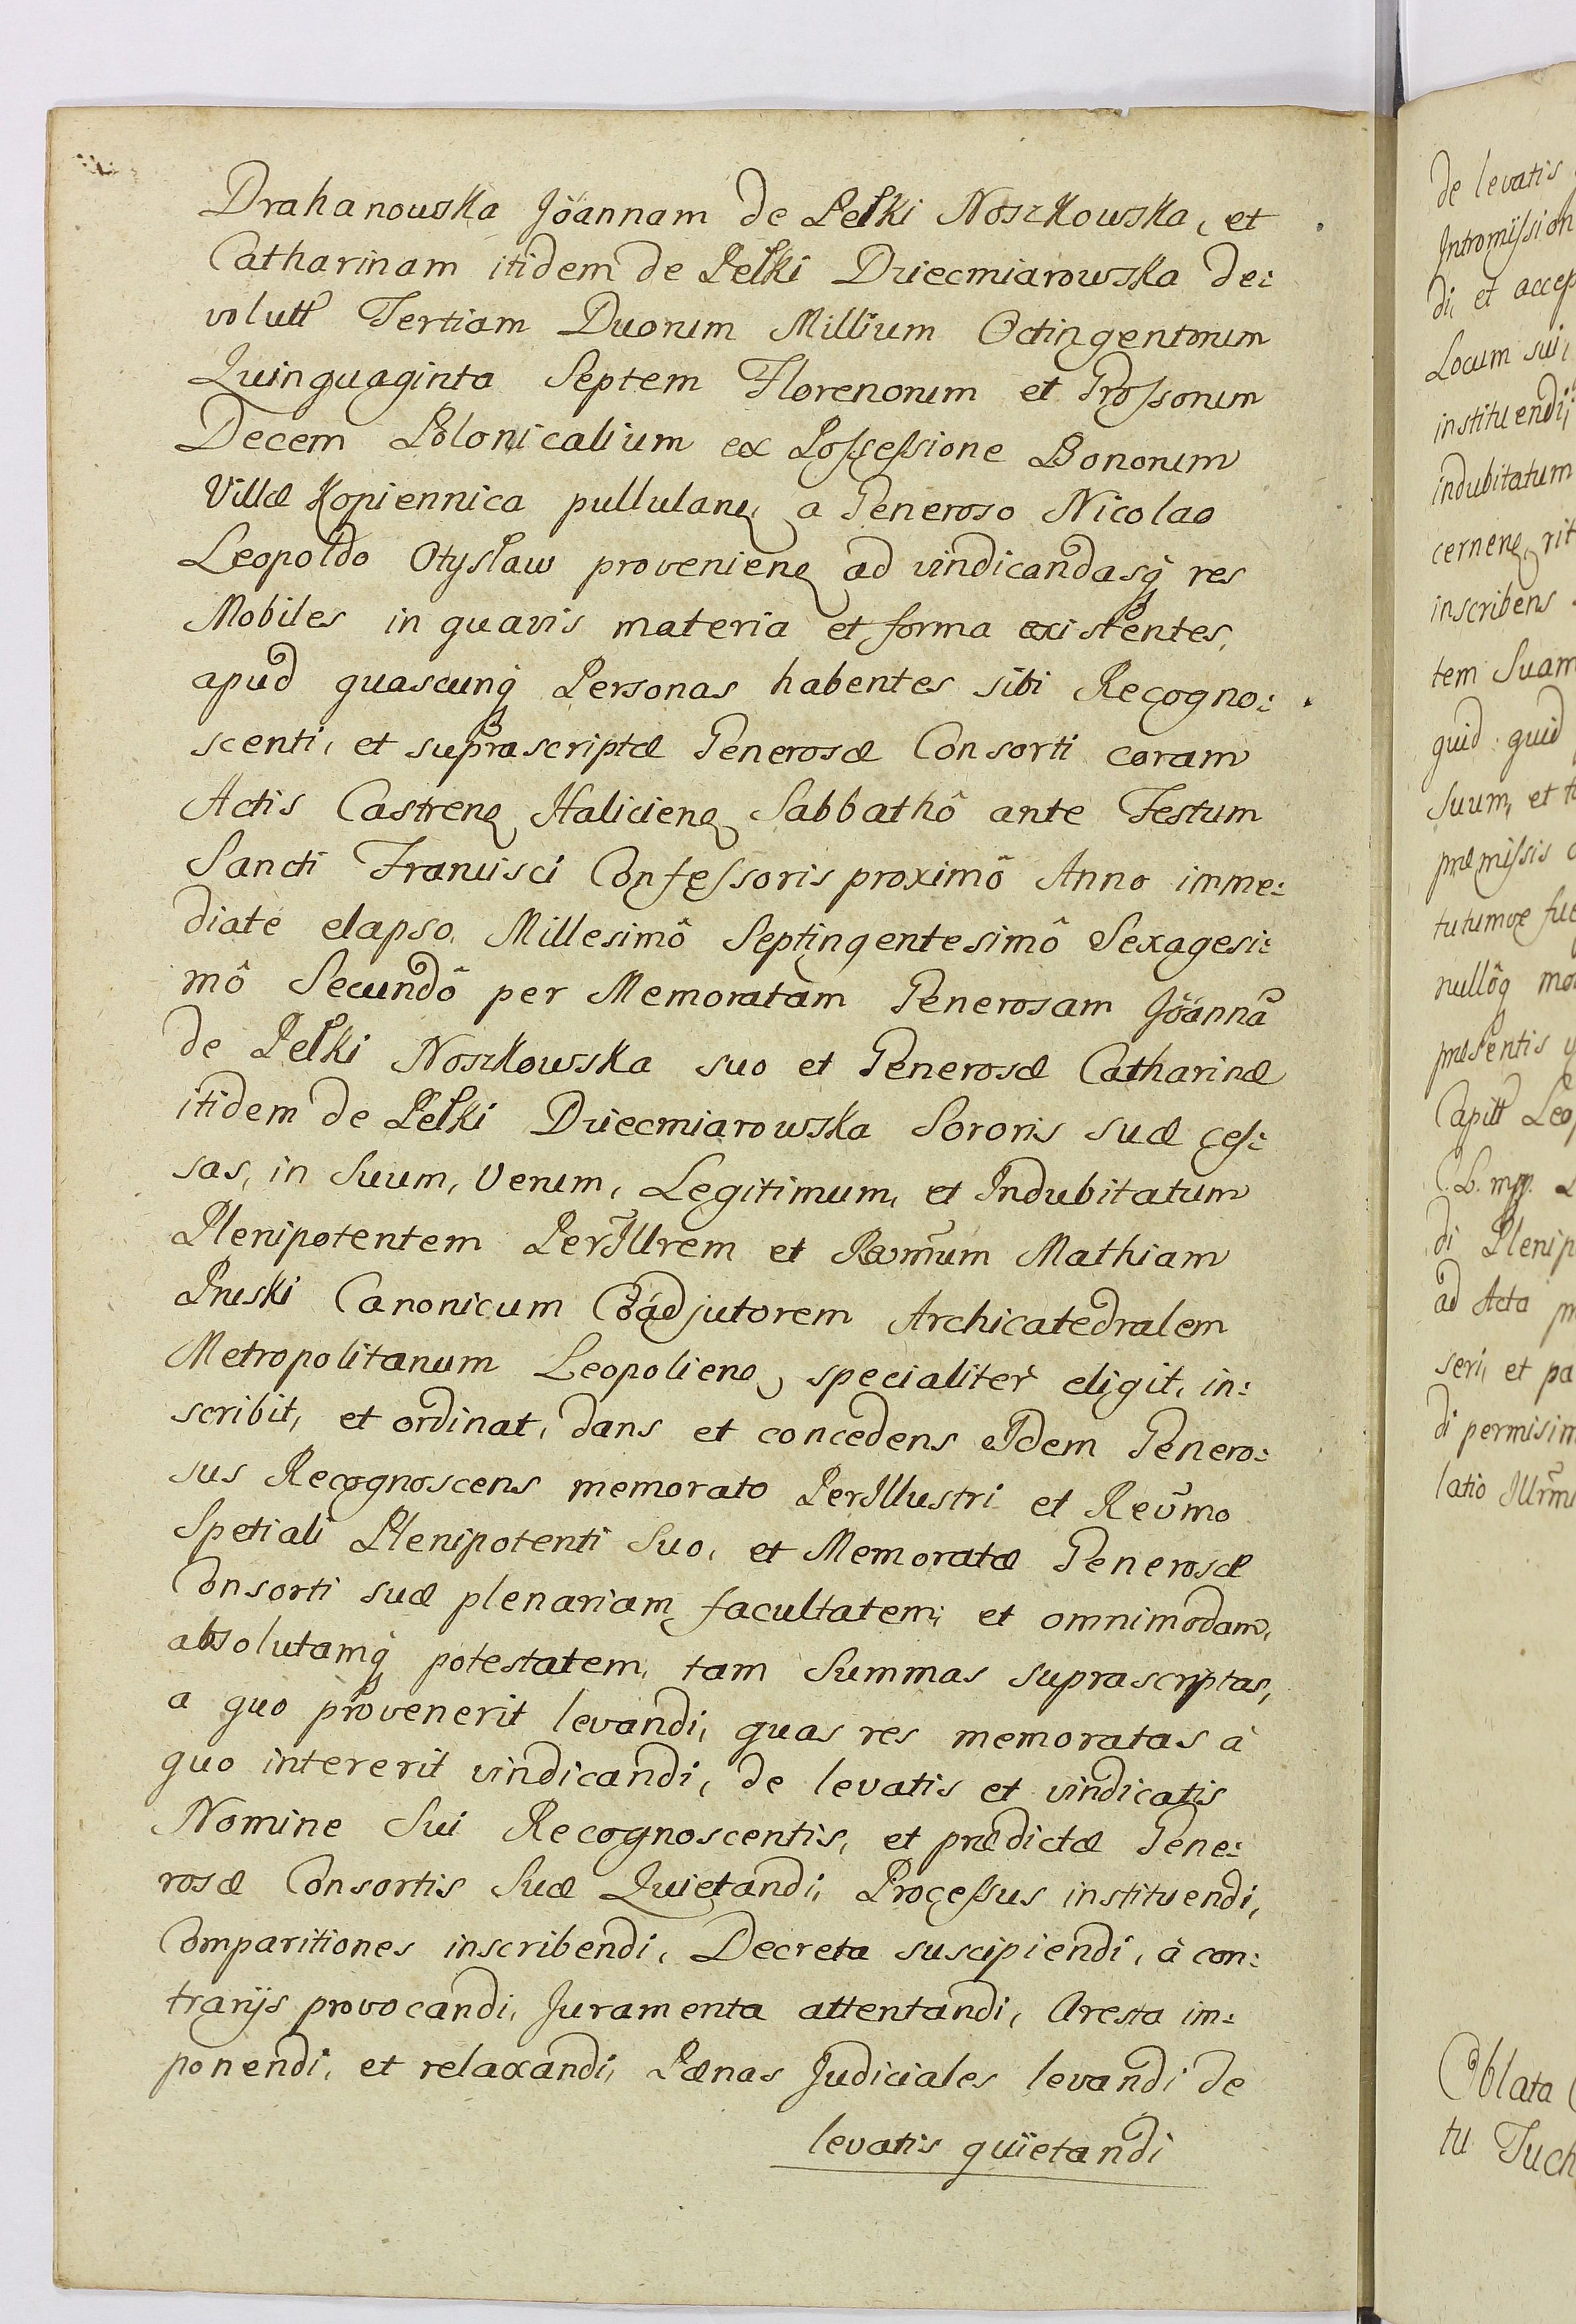 Drahanowska Jöannam de Pełki Noszkowska, et
Catharinam itidem de Pełki Dziecmiarowska de:
volutt Tertiam Duorum Millium Octingentorum
Quinquaginta Septem Florenorum et Grossorum
Decem Polonicalium ex Possessione Bonorum
Villæ Kopiennica pullulanꝗ a Generoso Nicolao
Leopoldo Otysław provenienꝗ ad vindicandasq̃ res
Mobiles in quavis materia et forma existentes,
apud quascunq̃ Personas habentes sibi Recogno:
scenti, et suprascriptæ Generosæ Consorti coram
Actis Castrenꝗ Halicienꝗ Sabbathô ante Festum
Sancti Francisci Confessoris proximô Anno imme:
diatè elapso, Millesimô Septingentesimô Sexagesi:
mô Secundô per Memoratàm Generosam Jöannã
de Pełki Noszkowska suo et Generosæ Catharinæ
itidem de Pełki Dziecmiarowska Sororis suæ ces:
sas, in Suum, Verum, Legitimum, et Indubitatum
Plenipotentem PerIllrem et Rev̄mum Mathiam
Pruski Canonicum Cöadjutorem Archicatedralem
Metropolitanum Leopolienꝗ, specialitèr eligit, in:
scribit, et ordinat, dans et concedens Idem Genero:
sus Recognoscens memorato PerIllustri et Rev̄mo
Spetiali Plenipotenti Suo, et Memoratæ Generosæ
Consorti suæ plenariam facultatem, et omnimodam,
absolutamq̃ potestatem, tam Summas suprascriptas,
a quo provenerit levandi, quas res memoratas à
quo intererit vindicandi, de levatis et vindicatis
Nomine Sui Recognoscentis, et prædictæ Gene:
rosæ Consortis Suæ Quietandi, Processus instituendi,
Comparitiones inscribendi, Decreta suscipiendi, à con:
trarijs provocandi, Juramenta attentandi, Aresta im:
ponendi, et relaxandi, Pænas Judiciales levandi de
levatis quietandi
de levatis
Intromission
di, et accep
Locum sui,
instituendi,
indubitatum
cernenꝗ, rit
inscribens
tem Suam
quid quid
Suum, et
præmissis
tutumve fue
nullôq mo
præsentis
Capitt Leo
di Plenip
ad Acta
seri, et pa
di permisim
latio Illrm
Oblata
tu Tuch